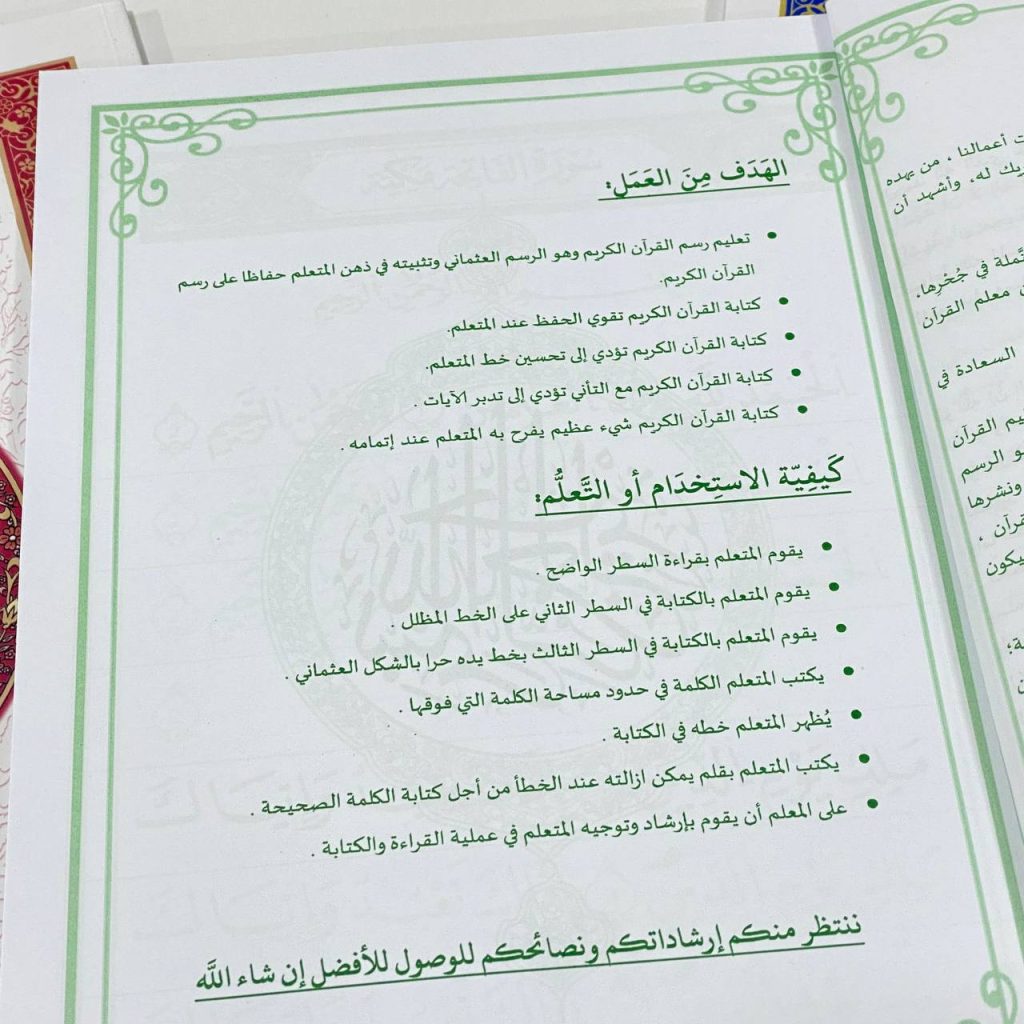 الهَدَف مِنَ العَمَل:
تعليم رسم القرآن الكريم وهو الرسم العثماني وتثبيته في ذهن المتعلم حفاظا على رسم
القرآن الكريم.
كتابة القرآن الكريم تقوي الحفظ عند المتعلم.
كتابة القرآن الكريم تؤدي إلى تحسين خط المتعلم.
كتابة القرآن الكريم مع التأني تؤدي إلى تدبر الآيات .
كتابة القرآن الكريم شيء عظيم يفرح به المتعلم عند إتمامه .
كَيفِيّة الاستِخدَام أو التَّعلُّم:
يقوم المتعلم بقراءة السطر الواضح .
يقوم المتعلم بالكتابة في السطر الثاني على الخط المظلل .
يقوم المتعلم بالكتابة في السطر الثالث بخط يده حرا بالشكل العثماني .
يكتب المتعلم الكلمة في حدود مساحة الكلمة التي فوقها .
يُظهر المتعلم خطه في الكتابة .
يكتب المتعلم بقلم يمكن ازالته عند الخطأ من أجل كتابة الكلمة الصحيحة .
على المعلم أن يقوم بإرشاد وتوجيه المتعلم في عملية القراءة والكتابة .
ننتظر منكم إرشاداتكم ونصائحكم للوصول للأفضل إن شاء اللَّه
أعمالنا ، من يهده
له، وأشهد أن
في جُحْرِها،
معلم القرآن
السعادة في
القرآن
الرسم
ونشرها